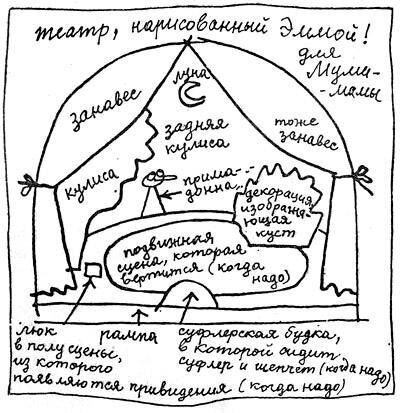 театр, нарисованный Эммой!
для
Муми-
мамы
луна
занавес
задняя
кулиса
тоже
занавес
кулиса
прима-
донна
декорация,
изображ-
ющая
куст
подвижная
сцена, которая
вертится (когда
надо)
люк
в полу сцены,
из которого
появляются привидения (когда надо)
рампа
суфлерская будка,
в которой сидит
суфлер и шепчет (когда надо)